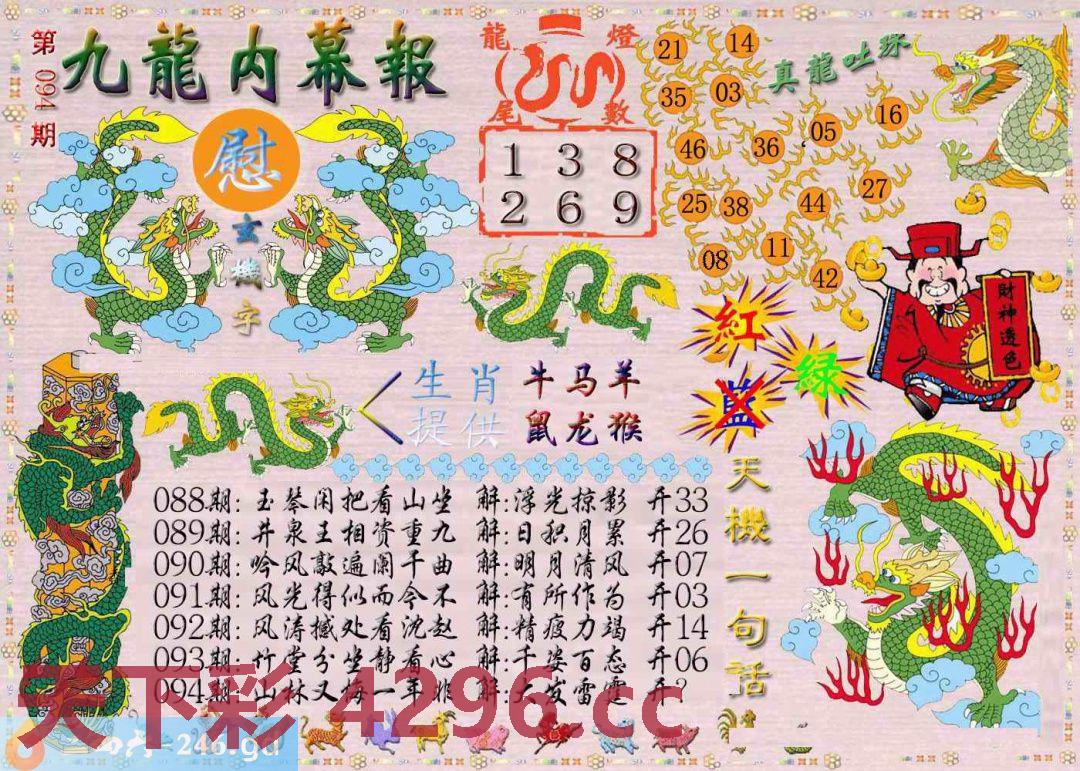 第094期
九龍内幕報
慰
玄機字
龍燈
尾數
1 3 8
2 6 9
真龍吐珠
21 14
35 03
46 36 05 16
25 38 44 27
08 11 42
紅
藍 绿
財神透色
生肖 牛马羊
提供 鼠龙猴
天機一句话
088期: 玉琴闲把看山坐 解:浮光掠影 开33
089期: 井泉王相资重九 解:日积月累 开26
090期: 吟风敲遍阑干曲 解:明月清风 开07
091期: 风光得似而今不 解:有所作为 开03
092期: 风涛撼处看沈赵 解:精疲力竭 开14
093期: 竹堂分坐静看心 解:千姿百态 开06
094期: 山林又悔一年非 解:大发雷霆 开?
天下彩 4296.cc
=246.gd